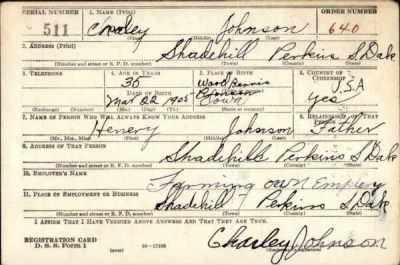 SERIAL NUMBER 1. NAME (Print) ORDER NUMBER
511 Charley Johnson 640
2. ADDRESS (Print)
Shadehill Perkins S Dak
(Number and street or R. F. D. number) (Town) (County) (State)
3. TELEPHONE 4. AGE IN YEARS 5. PLACE OF BIRTH 6. COUNTRY OF CITIZENSHIP
35 U.S.A
DATE OF BIRTH
Mar 22 1905 Iowa yes
(Exchange) (Number) (Mo.) (Day) (Yr.) (State or country)
7. NAME OF PERSON WHO WILL ALWAYS KNOW YOUR ADDRESS 8. RELATIONSHIP OF THAT PERSON
Henery Johnson Father
(Mr., Mrs., Miss) (First) (Middle) (Last)
9. ADDRESS OF THAT PERSON
Shadehill Perkins S Dak
(Number and street or R. F. D. number) (Town) (County) (State)
10. EMPLOYER'S NAME
Farming own Employ
11. PLACE OF EMPLOYMENT OR BUSINESS
Shadehill Perkins S Dak
(Number and street or R. F. D. number) (Town) (County) (State)
I AFFIRM THAT I HAVE VERIFIED ABOVE ANSWERS AND THAT THEY ARE TRUE.
REGISTRATION CARD
D. S. S. Form 1 (over) 16—17105 Charley Johnson